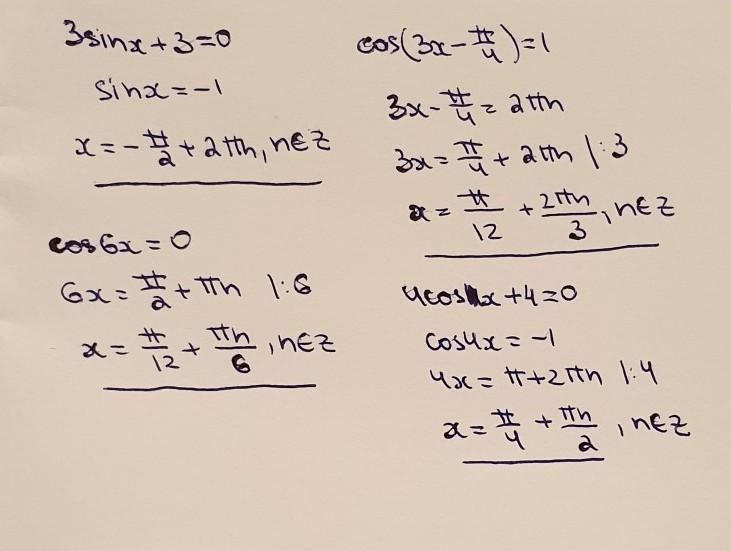 3sinx+3=0
sinx=-1
x=-π/2+2πn, n∈Z
cos6x=0
6x=π/2+πn |:6
x=π/12+πn/6, n∈Z
cos(3x-π/4)=1
3x-π/4=2πn
3x=π/4+2πn |:3
x=π/12+2πn/3, n∈Z
4cos4x+4=0
cos4x=-1
4x=π+2πn |:4
x=π/4+πn/2, n∈Z